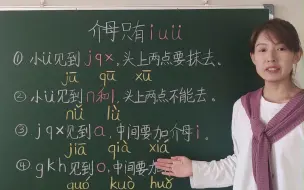 介母只有iuü
①小ü见到jqx,头上两点要抹去。
jū qū xū
②小ü见到n和l,头上两点不能去。
nǚ lǜ
③jqx见到a,中间要加介母i。
jiā qià xiá
④gkh见到o,中间要加
guó kuò huǒ